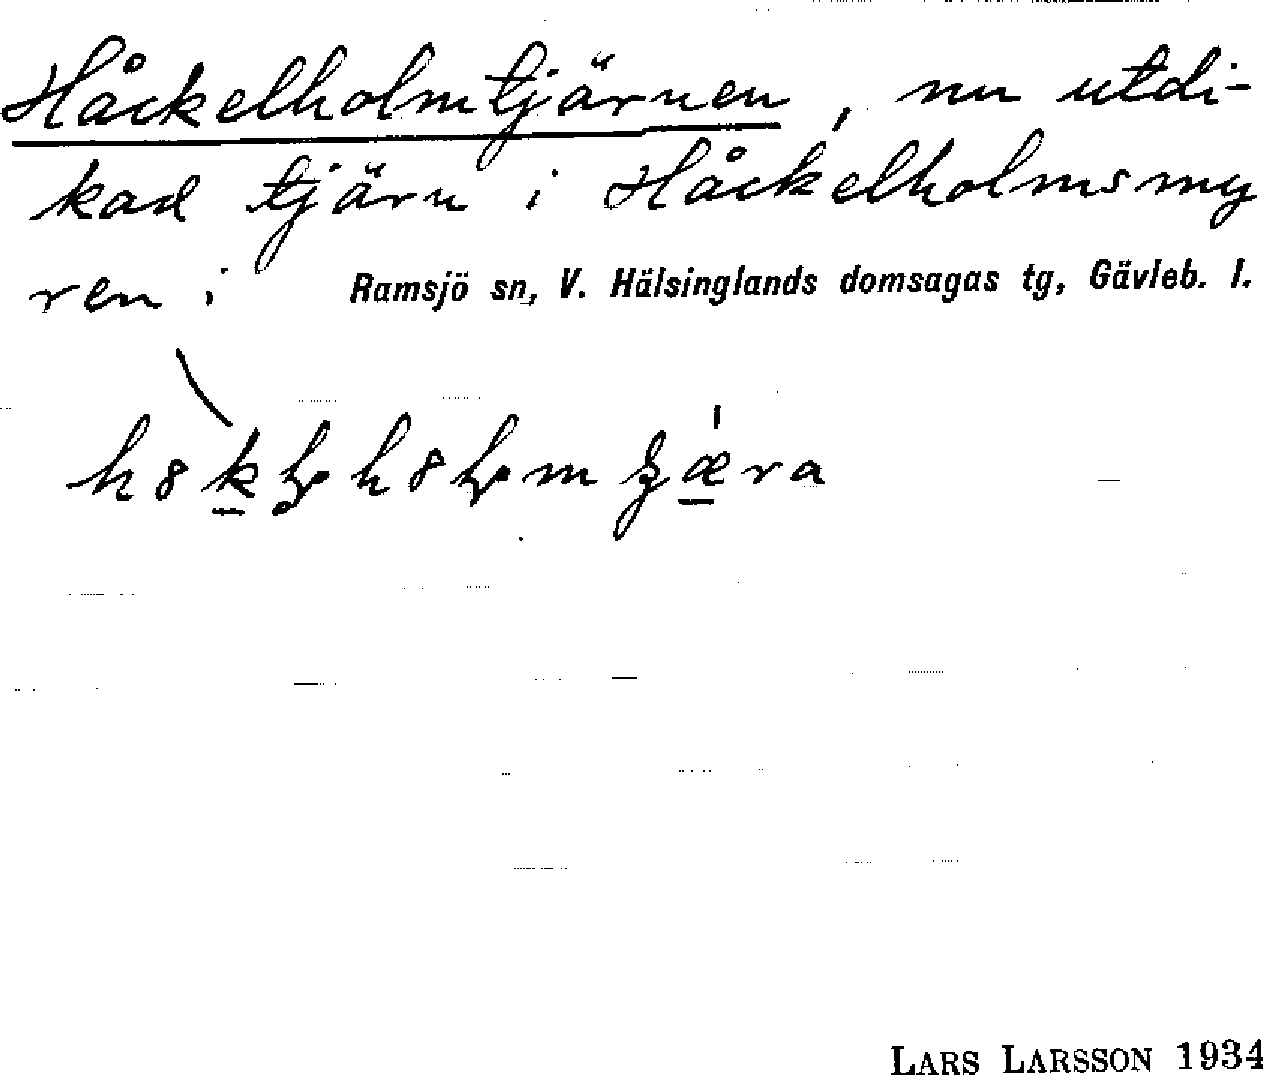 Håckelholmtjärnen, nu utdi-
kad tjärn i Håckelholmsmy
ren i Ramsjö sn, V. Hälsinglands domsagas tg, Gävleb. l.
LARS LARSSON 1934